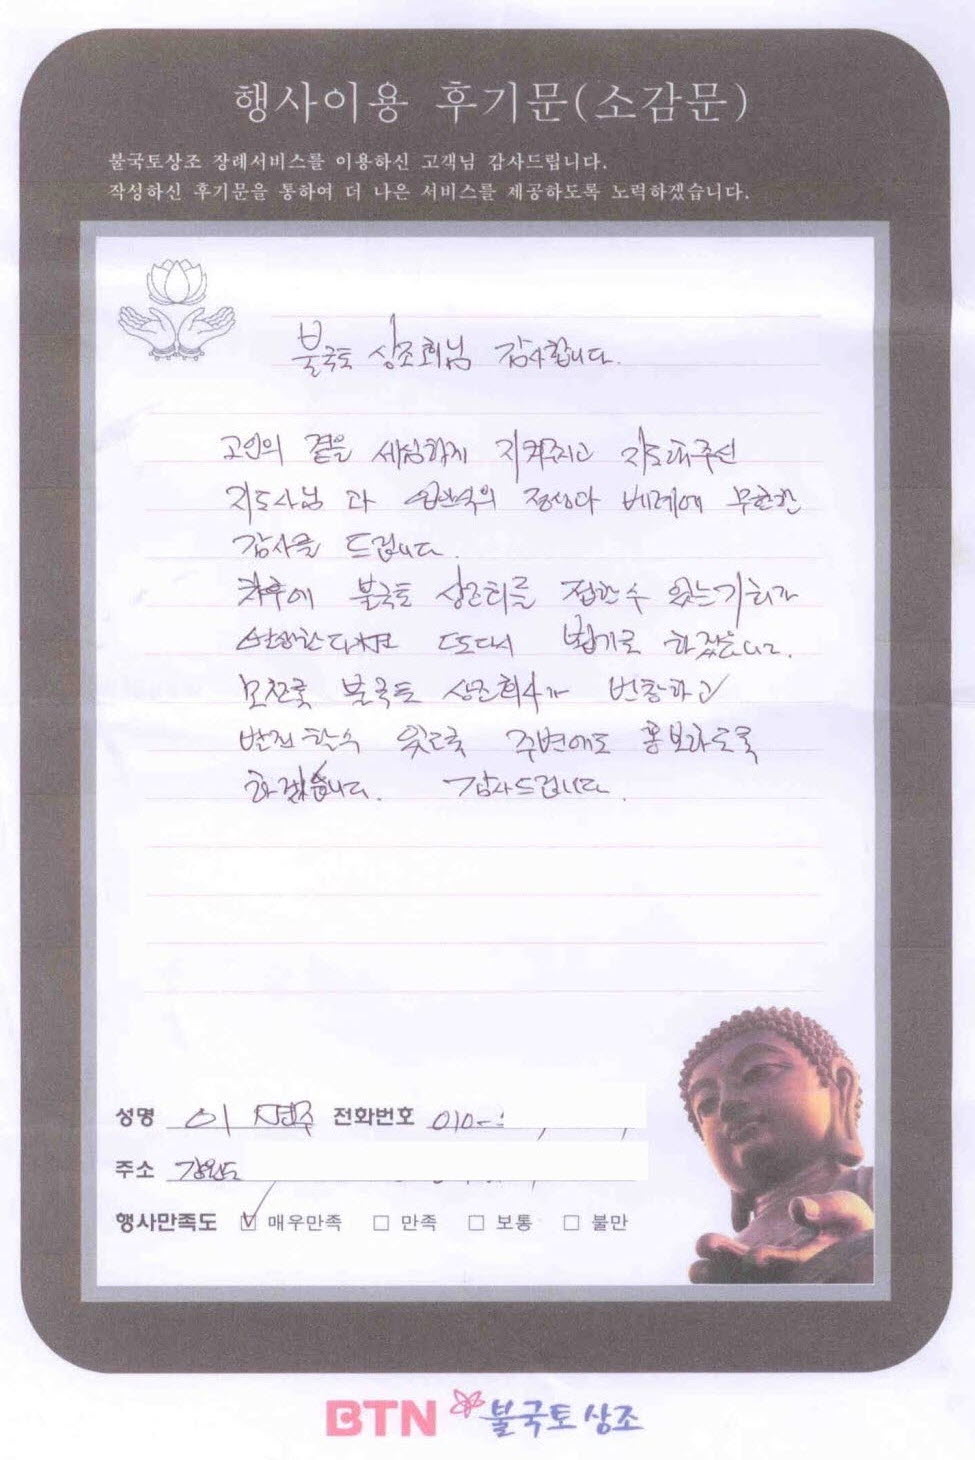 행사이용 후기문(소감문)
불국토상조 장례서비스를 이용하신 고객님 감사드립니다.
작성하신 후기문을 통하여 더 나은 서비스를 제공하도록 노력하겠습니다.
불국토 상조회님 감사합니다.
고인의 곁을 세심하게 지켜주시고 지도해주신
지도사님과 정성과 배려에 무한한
감사를 드립니다.
차후에 불국토 상조회를 접할수 있는 기회가
또다시 뵙기로 하겠습니다.
모쪼록 불국토 상조회사가 번창하고
발전할수 있도록 주변에도 홍보하도록
하겠습니다. 감사드립니다.
성명 이 전화번호 010-
주소 강원도
행사만족도 ☑ 매우만족 □ 만족 □ 보통 □ 불만
BTN 불국토상조